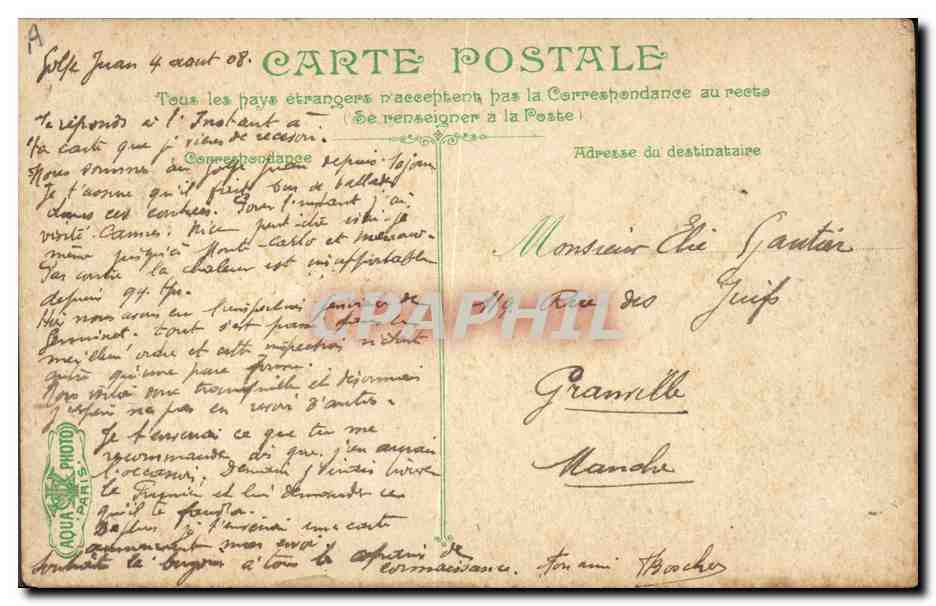 A
Golfe Juan 4 aout 08.
CARTE POSTALE
Tous les pays étrangers n'acceptent pas la Correspondance au recto
(Se renseigner à la Poste)
Je réponds à l'Instant à
ta carte que je viens de recevoir.
Correspondance
Adresse du destinataire
Nous sommes au Golfe Juan depuis
Je t'assure qu'il fait bon de ballader
dans ces contrées. Pour l'instant j'ai
visité Cannes. Nice peut-être irai-je
même jusqu'à Monte-Carlo et
Par contre la chaleur est insupportable
depuis
Hier nous avons eu l'inspection
tout s'est passé dans le
meilleur ordre et cette inspection n'était
autre qu'une pure forme.
Nous voilà tranquille et désormais
j'espère ne pas en revoir d'autres.
Je t'enverrai ce que tu me
recommandes dès que j'en aurai
l'occasion. Demain j'irai trouver
le et lui demander ce
qu'il te faudra.
De plus je t'enverrai une carte
annonçant mon envoi.
à tous le de
connaissance. Ton ami
Monsieur Elie Gautier
119 Rue des Juifs
Granville
Manche
AQUA PHOTO
PARIS
CPAPHIL